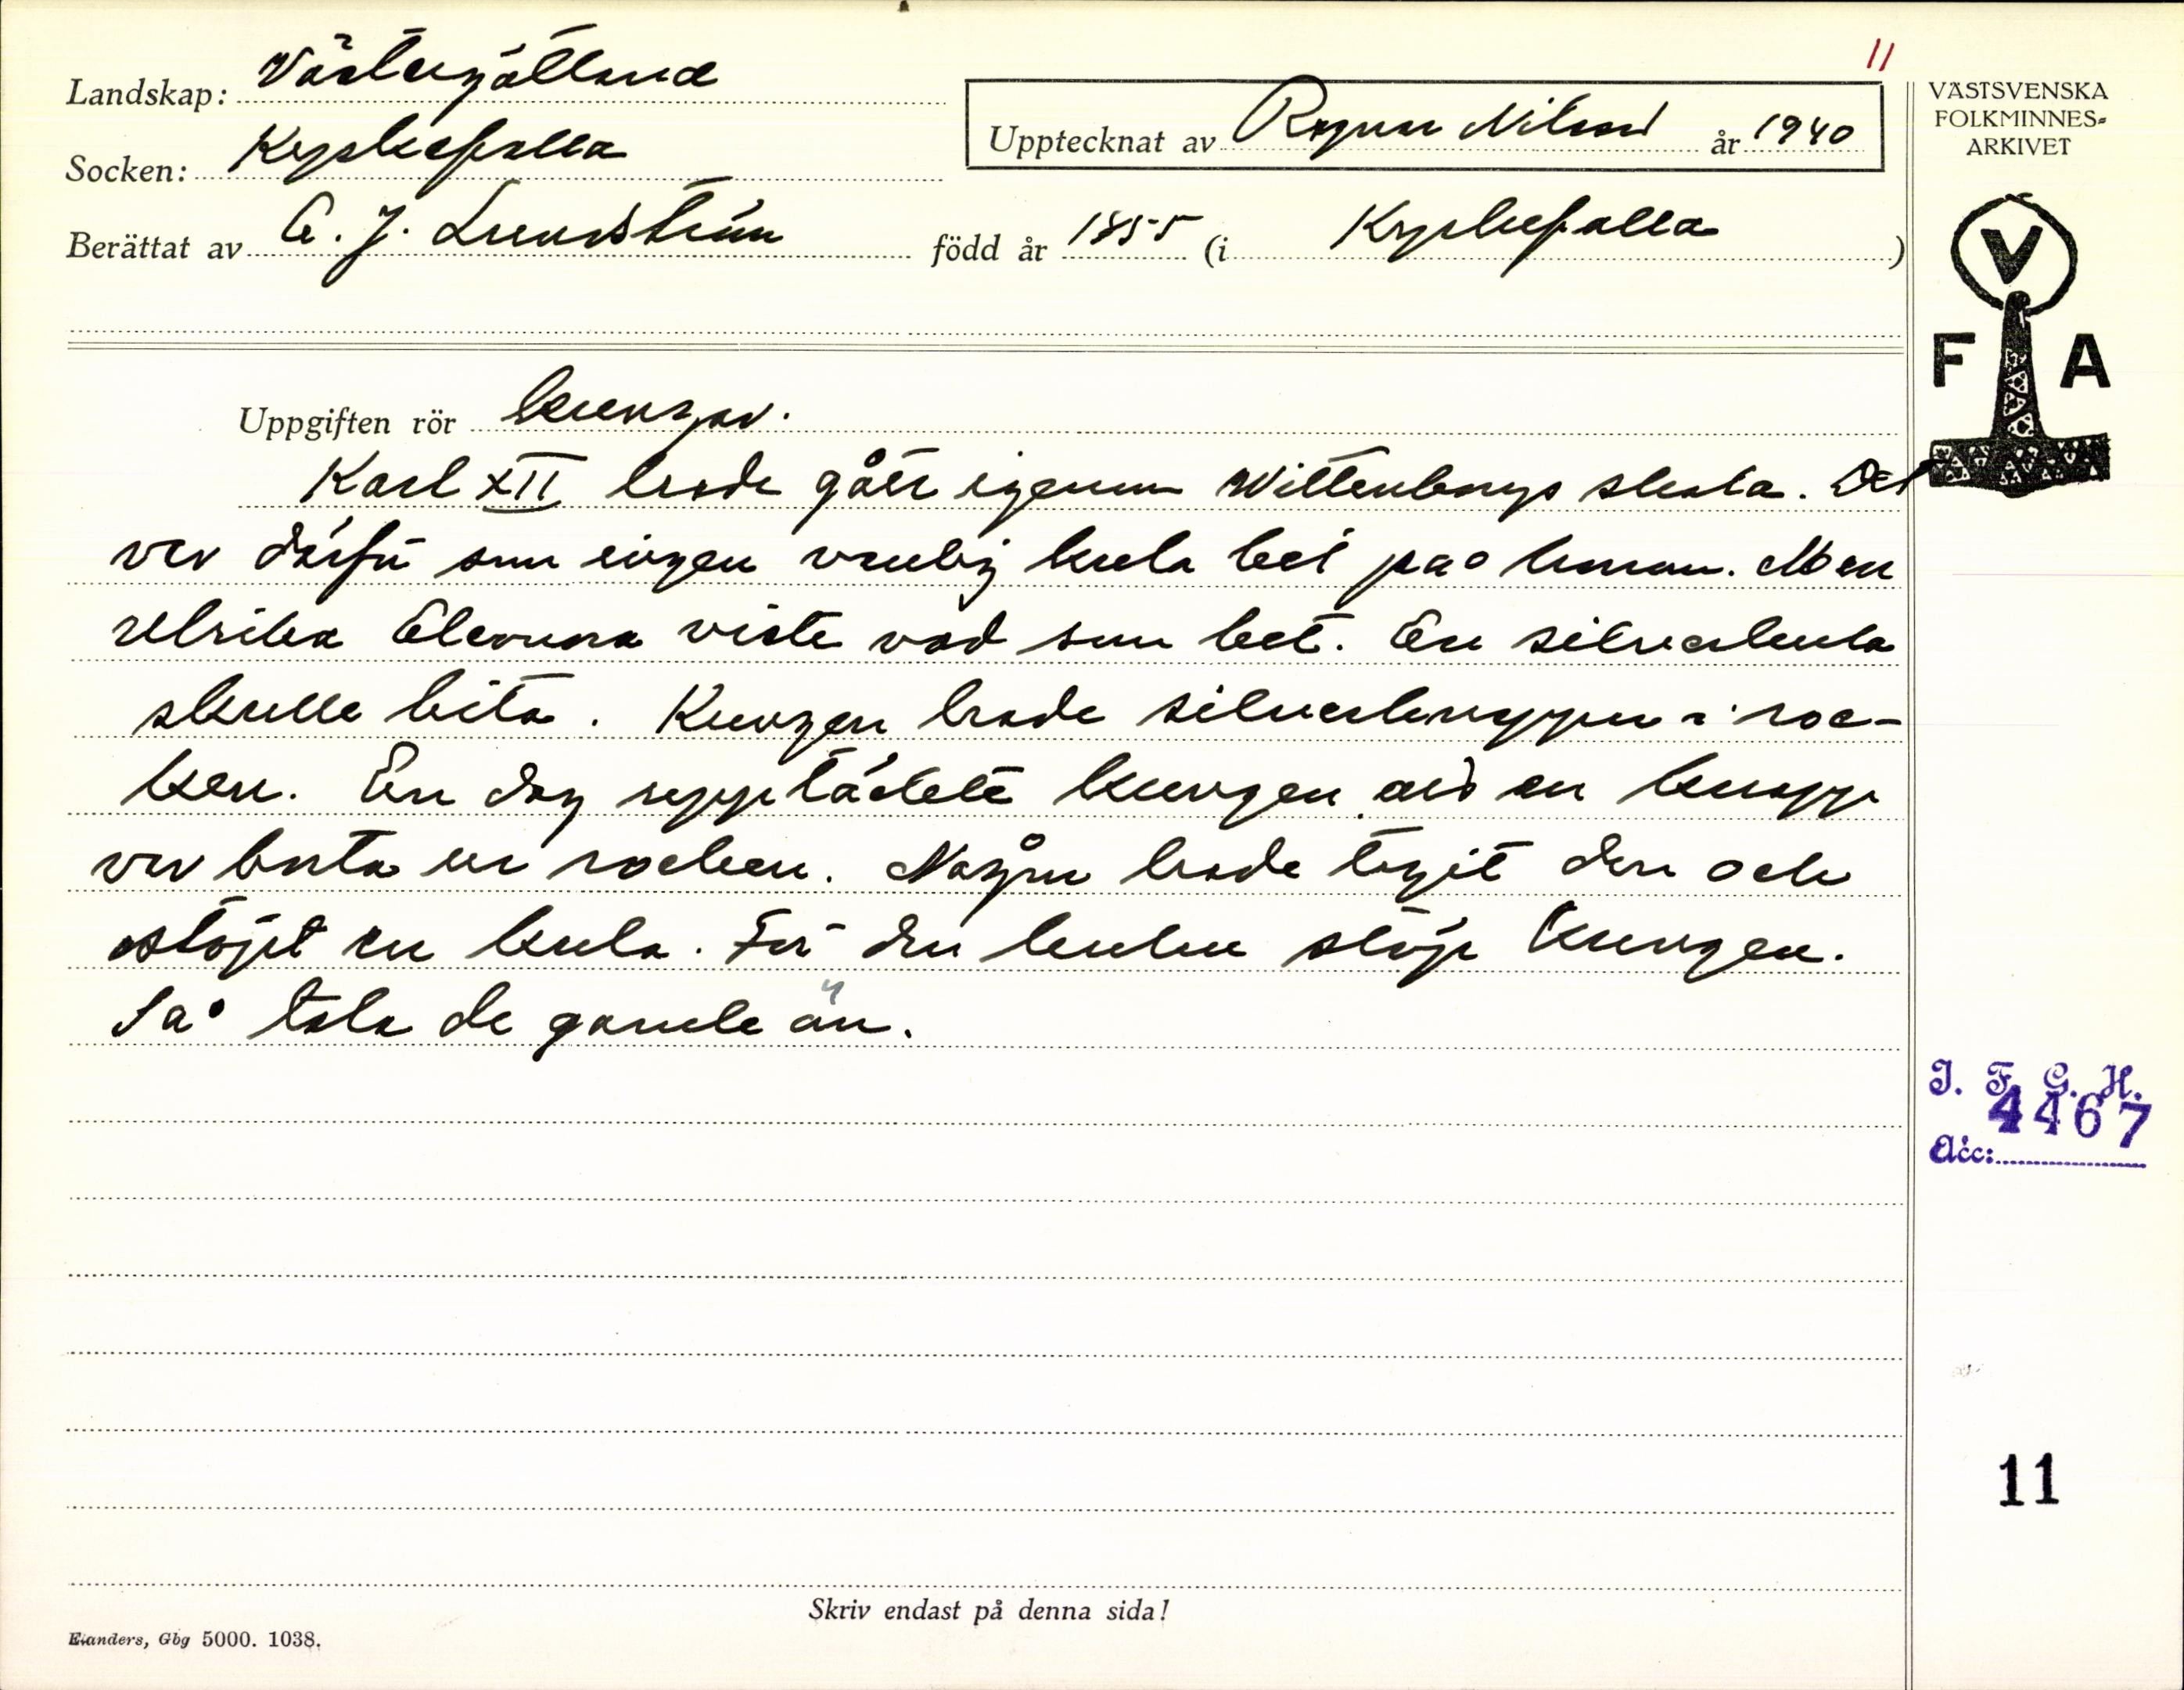 11
Landskap: Västergötland
Socken: Kyrkefalla
Upptecknat av Ragnar Nilsson år 1940
Berättat av C. J. Lundström född år 1855 (i Kyrkefalla)
VÄSTSVENSKA
FOLKMINNES-
ARKIVET
V
F A
Uppgiften rör kungar.
Karl XII hade gått igenom Wittenbergs skola. Det
var därför som ingen vanlig kula bet på honom. Men
Ulrika Eleonora viste vad som bet. En silverkula
skulle bita. Kungen hade silverknappar i roc-
ken. En dag upptäckte kungen att en knapp
var borta ur rocken. Någon hade tagit den och
stöpt en kula. För den kulan stöp kungen.
Så tala de gamle än.
I. F. G. H.
4467
Acc:
11
Skriv endast på denna sida!
Elanders, Gbg 5000. 1038.